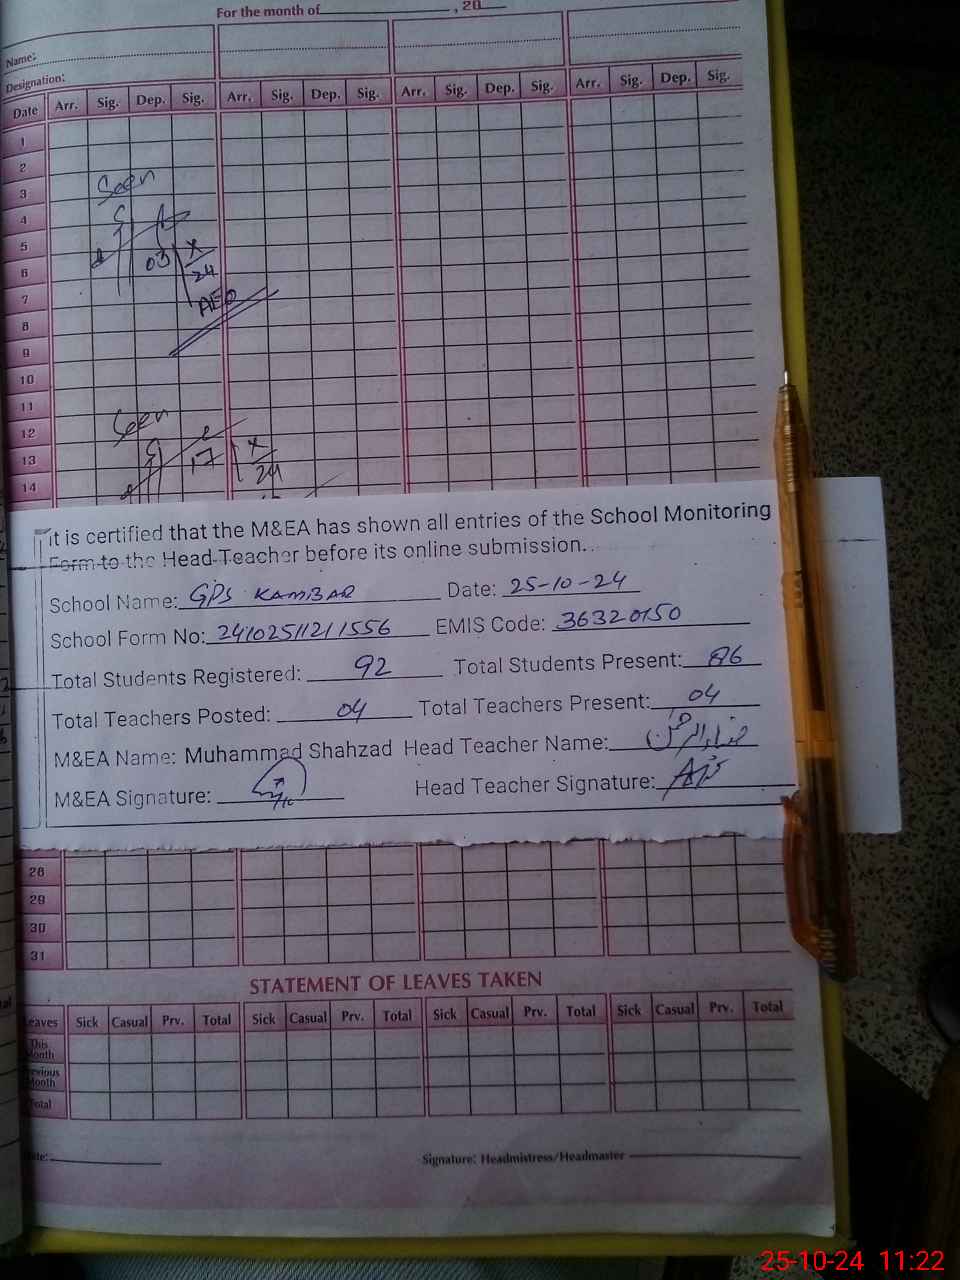 For the month of , 20
Name:
Designation:
Date Arr. Sig. Dep. Sig. Arr. Sig. Dep. Sig. Arr. Sig. Dep. Sig. Arr. Sig. Dep. Sig.
1
2
3
Seen
4
5
03 X
6
24
7
AEO
8
9
10
11
Seen
12
13
17 X
24
14
it is certified that the M&EA has shown all entries of the School Monitoring
Form to the Head Teacher before its online submission.
School Name: GPS KAMBAR Date: 25-10-24
School Form No: 24102511211556 EMIS Code: 36320150
Total Students Registered: 92 Total Students Present: 86
Total Teachers Posted: 04 Total Teachers Present: 04
M&EA Name: Muhammad Shahzad Head Teacher Name: ضیاء الرحمن
M&EA Signature: Head Teacher Signature:
28
29
30
31
STATEMENT OF LEAVES TAKEN
Leaves Sick Casual Prv. Total Sick Casual Prv. Total Sick Casual Prv. Total Sick Casual Prv. Total
This
Month
Previous
Month
Total
Date:
Signature: Headmistress/Headmaster
25-10-24 11:22